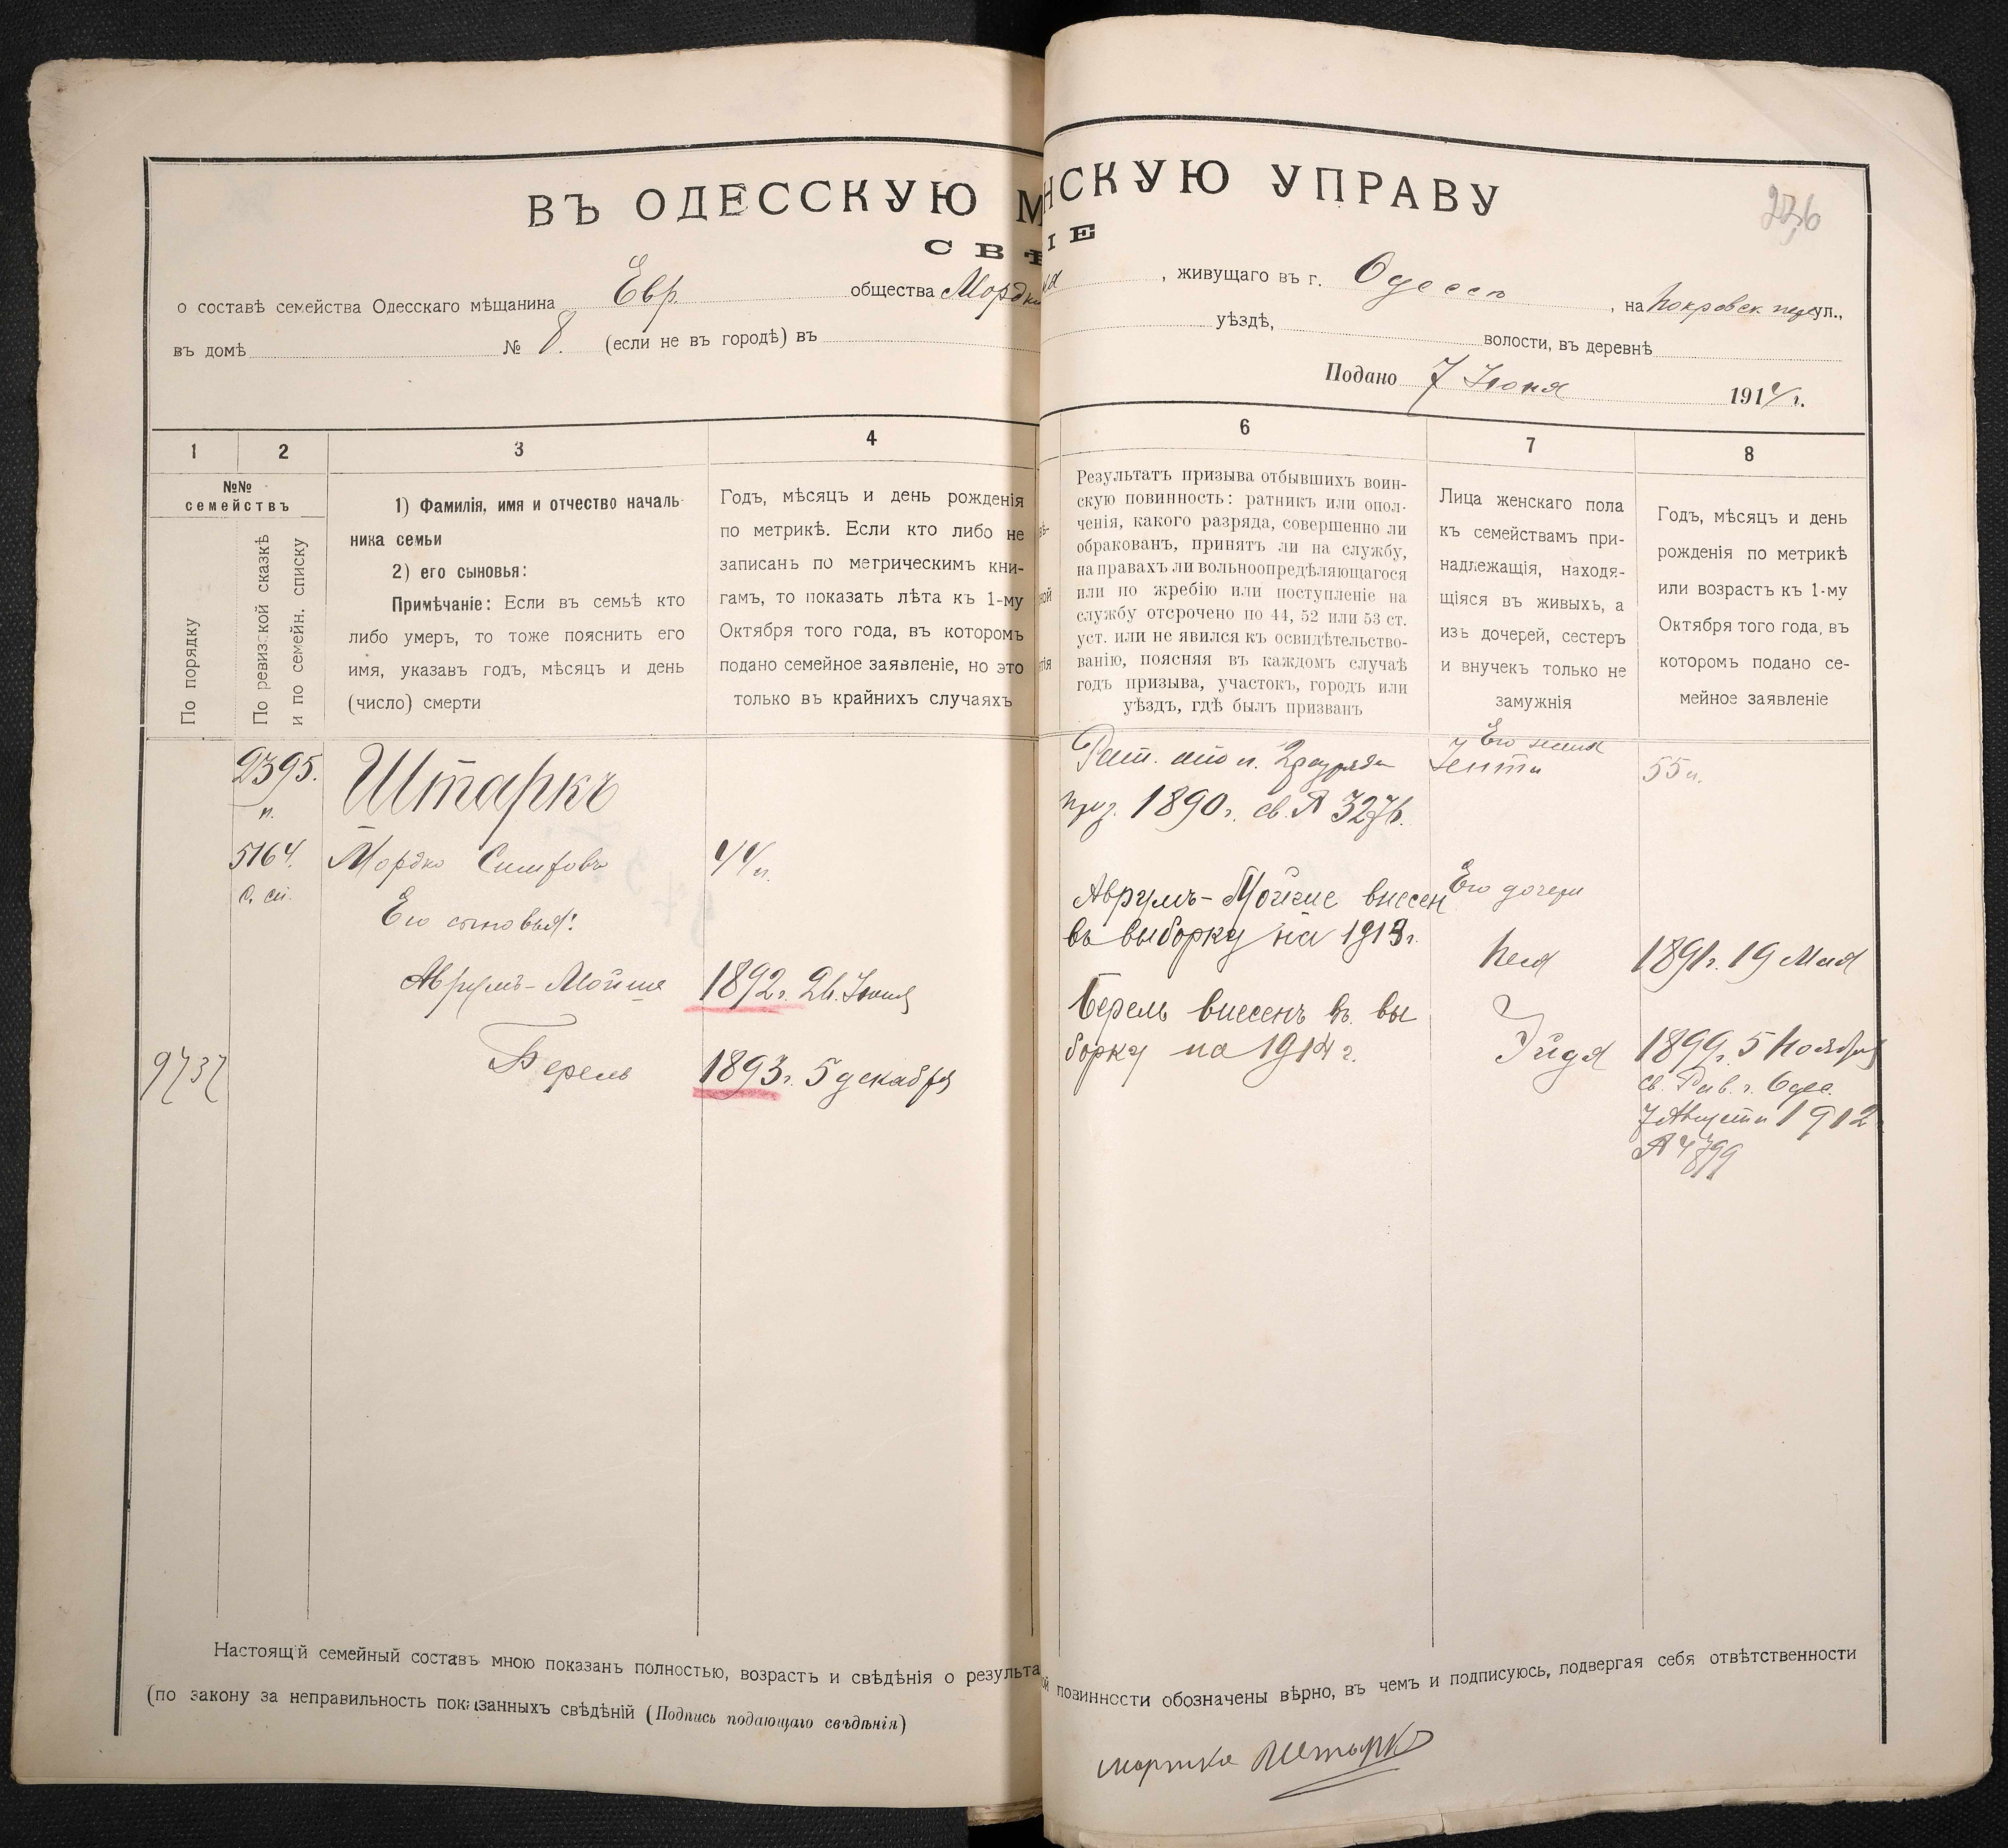 ВЪ ОДЕССКУЮ М
НСКУЮ УПРАВУ
236
СВѢ
ІЕ
о составѣ семейства Одесскаго мѣщанина Евр общества Мордк
, живущаго въ г. Одессѣ, на Покровск. пер ул.,
въ домѣ № 8. (если не въ городѣ) въ
уѣздѣ, волости, въ деревнѣ
Подано 7 Іюня 1914 г.
1
2
3
4
6
7
8
№№
семействъ
По порядку
По ревизской сказкѣ
и по семейн. списку
1) Фамилія, имя и отчество началь-
ника семьи
2) его сыновья:
Примѣчаніе: Если въ семьѣ кто
либо умеръ, то тоже пояснить его
имя, указавъ годъ, мѣсяцъ и день
(число) смерти
Годъ, мѣсяцъ и день рожденія
по метрикѣ. Если кто либо не
записанъ по метрическимъ кни-
гамъ, то показать лѣта къ 1-му
Октября того года, въ которомъ
подано семейное заявленіе, но это
только въ крайнихъ случаяхъ
Результатъ призыва отбывшихъ воин-
скую повинность: ратникъ или опол-
ченія, какого разряда, совершенно ли
обракованъ, принятъ ли на службу,
на правахъ ли вольноопредѣляющагося
или по жребію или поступленіе на
службу отсрочено по 44, 52 или 53 ст.
уст. или не явился къ освидѣтельство-
ванію, поясняя въ каждомъ случаѣ
годъ призыва, участокъ, городъ или
уѣздъ, гдѣ былъ призванъ
Лица женскаго пола
къ семействамъ при-
надлежащія, находя-
щіяся въ живыхъ, а
изъ дочерей, сестеръ
и внучекъ только не
замужнія
Годъ, мѣсяцъ и день
рожденія по метрикѣ
или возрастъ къ 1-му
Октября того года, въ
которомъ подано се-
мейное заявленіе
2395.
Штаркъ
Рат. опол. 2 разряда
Его жена
55 л.
приз. 1890 г. св. № 3276.
5164.
Мордко
44 л.
Его сыновья:
Аврумъ-Мойше внесен
Его дочери
въ выборку на 1913 г.
Песя 1891 г. 19 Мая
Аврумъ-Мойше 1892 г. 26 Іюня
Берель внесенъ въ вы
борку на 1914 г.
9737
Берель 1893 г. 5 декабря
Эйдя 1899 г. 5 Ноября
св. Рав. г. Одес.
7 Августа 1912
№ 4799
Настоящій семейный составъ мною показанъ полностью, возрастъ и свѣдѣнія о результа
ой повинности обозначены вѣрно, въ чемъ и подписуюсь, подвергая себя отвѣтственности
(по закону за неправильность показанныхъ свѣдѣній (Подпись подающаго свѣдѣнія)
Штаркъ